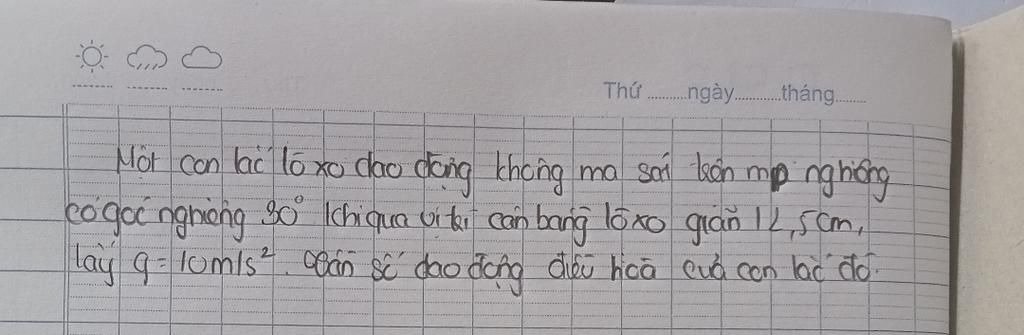 Thứ.........ngày...........tháng........
Một con lắc lò xo dao động không ma sát trên mp nghiêng
có góc nghiêng 30° Khi qua vị trí cân bằng lò xo giãn 12,5cm,
lấy g = 10m/s². Tần số dao động điều hoà của con lắc đó.